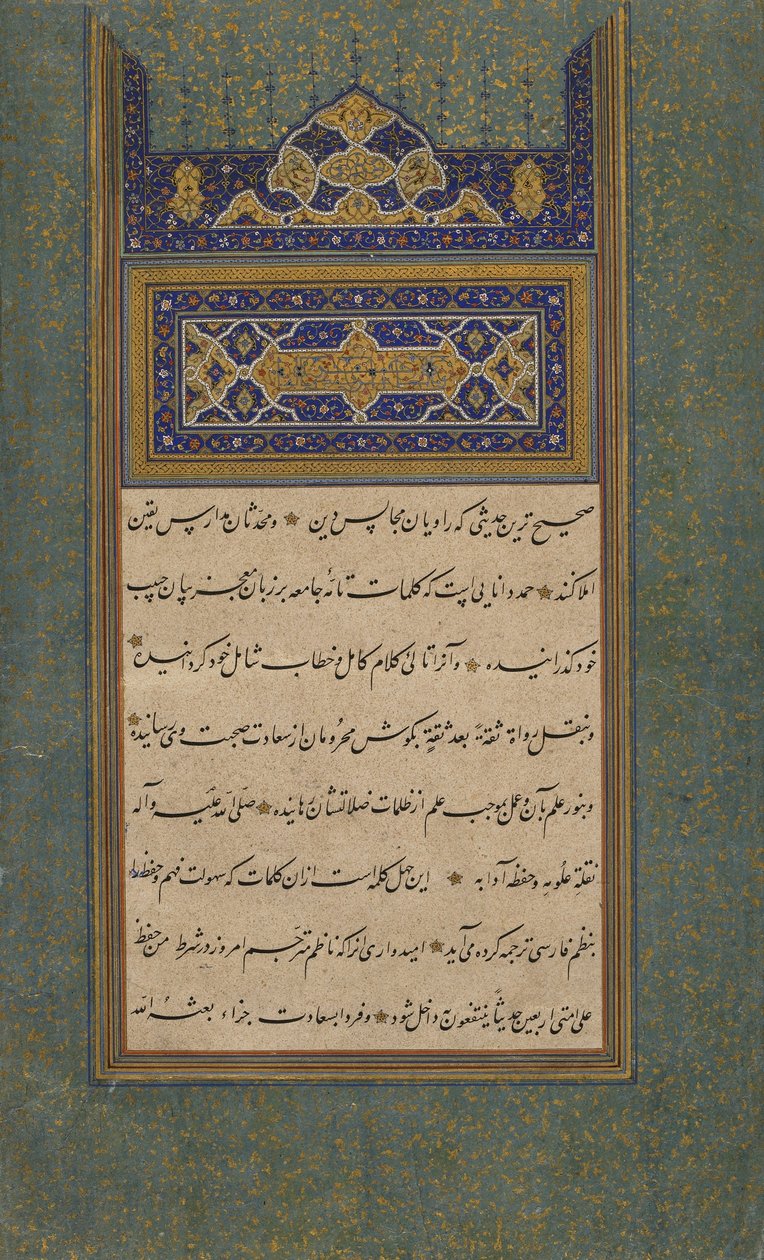 صحیح ترین حدیثی که راویان مجالس دین و محدّثان مدارس یقین
املا کنند حمد دانایی است که کلمات تامّهٔ جامعه بر زبان معجز بیان حبیب
خود گذرانیده و آنرا تالئ کلام کامل و خطاب شامل خود گردانیده
و بنقل رواة ثقةً بعد ثقةٍ بگوش محرُومان از سعادت صحبت وی رسانیده
و بنور علم بآن و عمل بموجب علم از ظلمات ضلالتشان رهانیده صلّی الله علَیه و آله
نقلةِ علُومِهِ و حفظه آدابه این چهل کلمه است ازان کلمات که سهولت فهم و حفظ را
بنظم فارسی ترجمه کرده می آید امیدواری انرا که ناظم مترجّم امروز در شرط من حفظ
علی امتی اربعین حدیثاً ینتفعون به داخل شود و فردا بسعادت جزاء بعثهُ الله